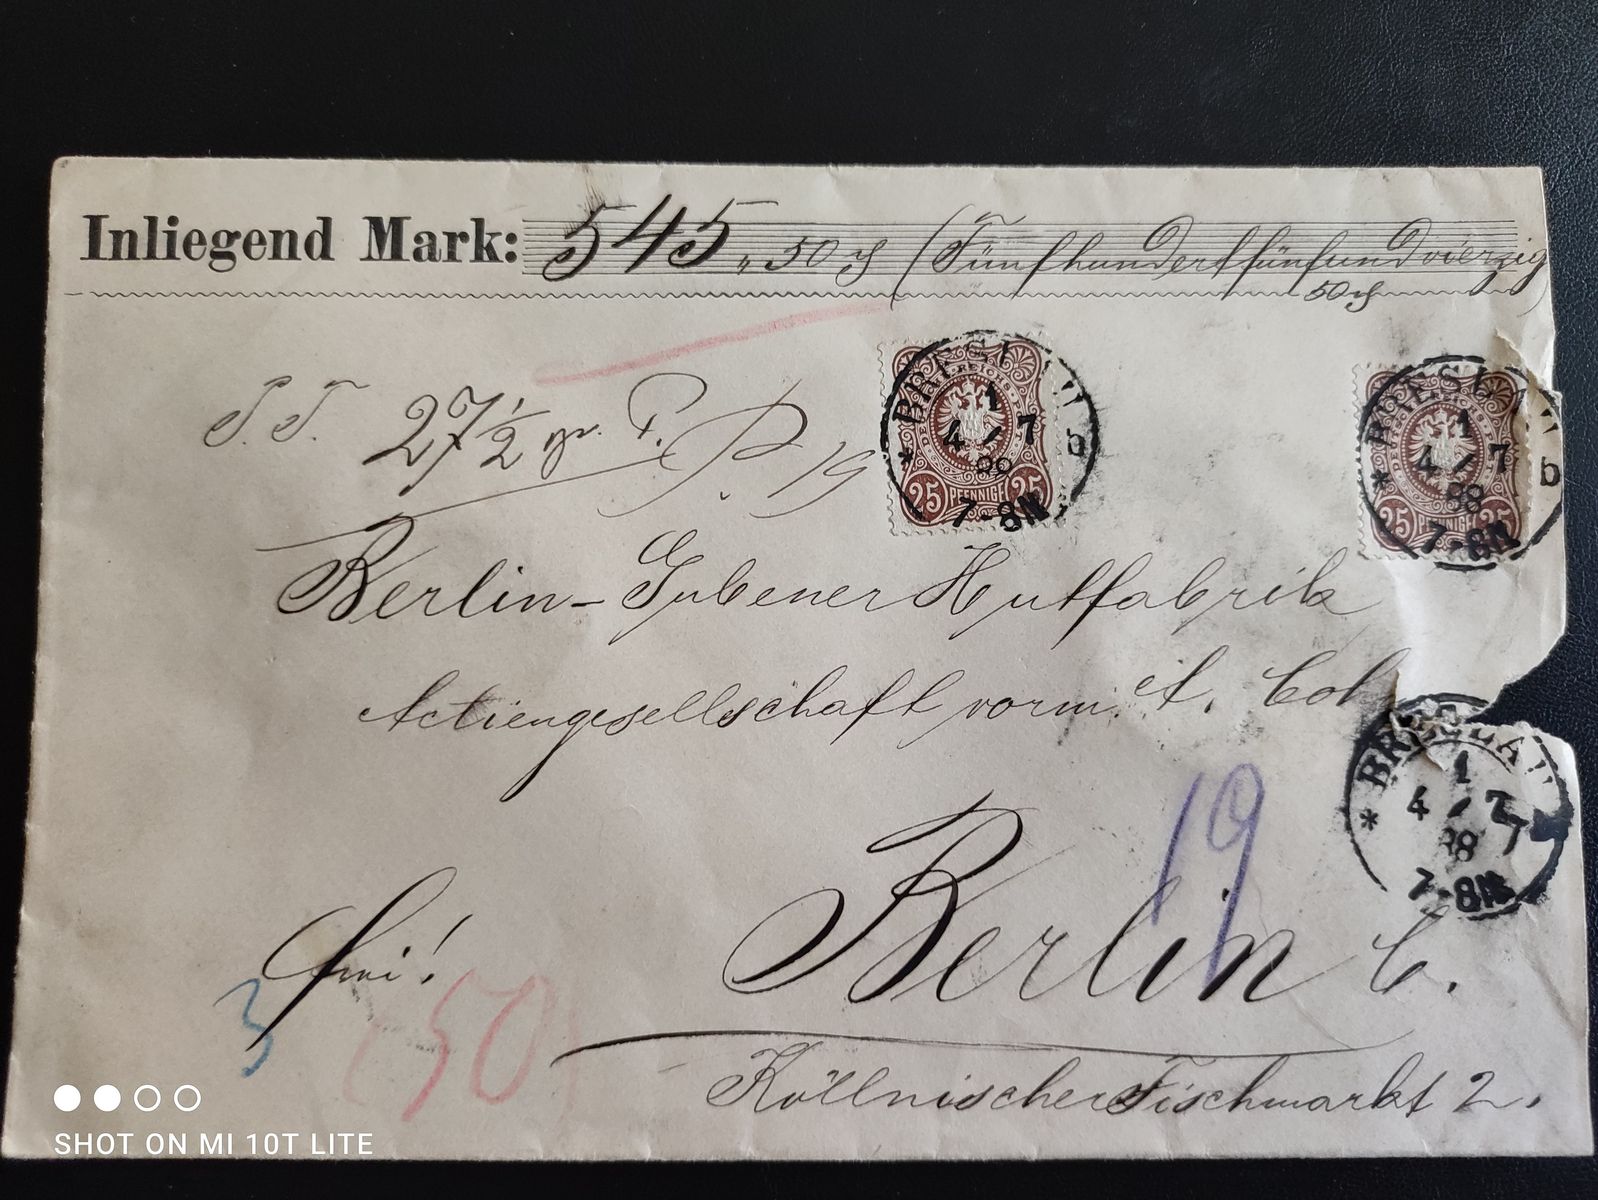 Inliegend Mark: 545 „ 50 ₰ (Fünfhundertfünfundvierzig
50 ₰)
27½ gr. P. 19
BRESLAU
1
4/7
88
7-8N
* b
REICHS-POST
25 PFENNIGE 25
BRESLAU
1
4/7
88
7-8N
* b
25 PFENNIGE 25
Berlin-Gubener Hutfabrik
Actiengesellschaft vorm. A. Coh
BRESLAU
1
4/7
88
7-8N
*
19
Berlin C.
frei!
3
(50)
Köllnischer Fischmarkt 2.
SHOT ON MI 10T LITE